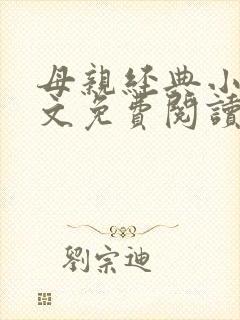 母親經典小
文免費閱讀
劉宗迪